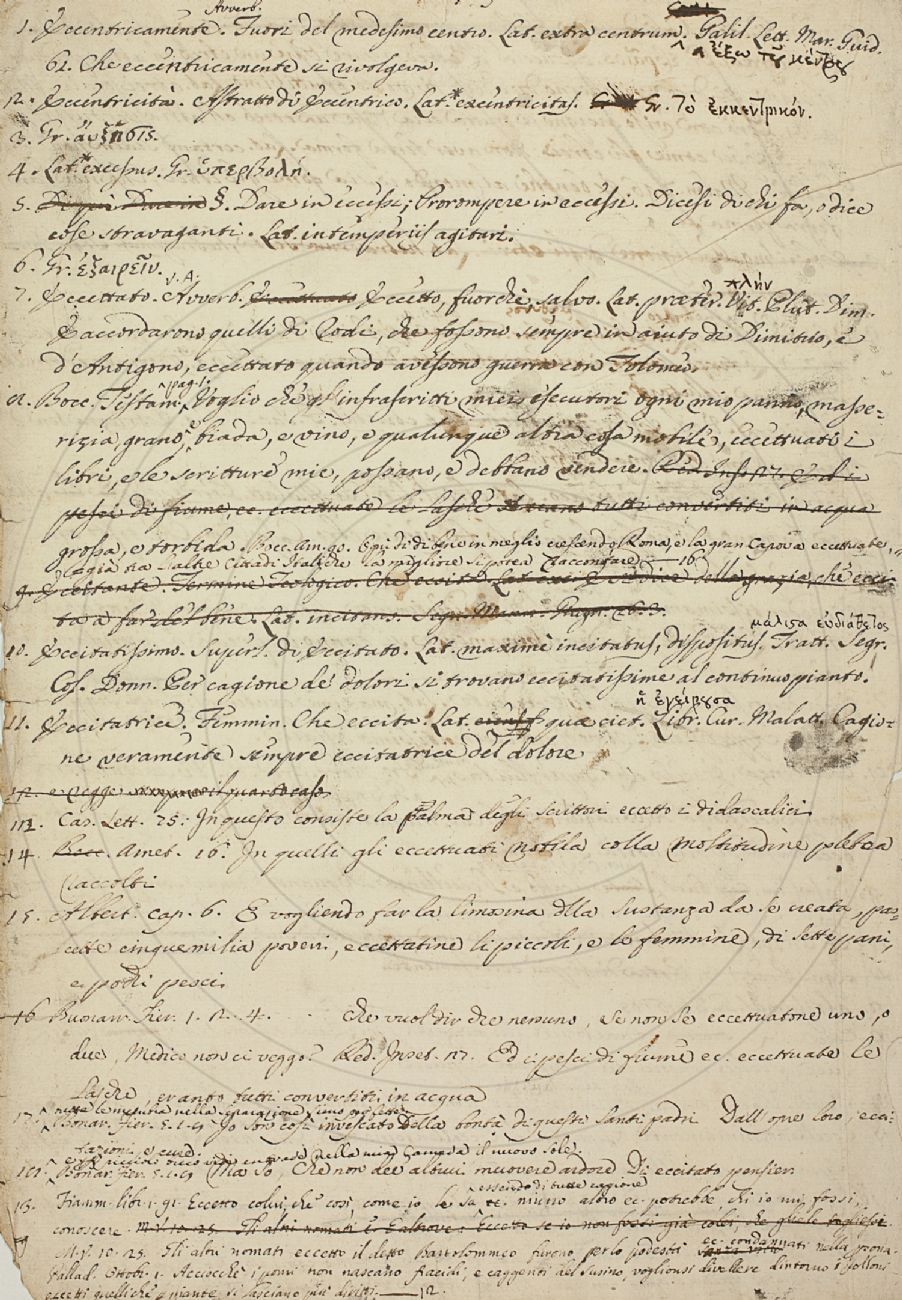 Avverb.
1. Eccentricamente. Fuori del medesimo centro. Lat. extra centrum. Galil. Lett. Mar. Guid.
ἔξω τοῦ κέντρου
61. Che eccentricamente si rivolgeva.
2. Eccentricità. Astratto di Eccentrico. Lat. excentricitas. Gr. τὸ ἐκκεντρικόν.
3. Gr. αὔξησις.
4. Lat. excessus. Gr. ὑπερβολή.
5. §. Dare in eccessi; Prorompere in eccessi. Dicesi di chi fa, o dice
cose stravaganti. Lat. intemperiis agitari.
6. Gr. ἐξαιρεῖν.
V. A. πλήν
7. Eccettato. Avverb. Eccetto, fuorchè, salvo. Lat. præter. Vit. Plut. Dim.
E accordarono quelli di Rodi, che fossono sempre in aiuto di Dimitrio, e
d'Antigono, eccettato quando avessono guerra con Tolomeo.
pag. 1.
Bocc. Testam. Voglio che gl'infrascritti miei esecutori ogni mio panno, masse-
rizia, grano, e biada, e vino, e qualunque altra cosa mobile, eccettuati i
libri, e le scritture mie, possano, e debbano vendere. Red. Ins. 127. Ed i
pesci di fiume ec. eccettuate le lasche erano tutti convertiti in acqua
grossa, e torbida. di dì in dì in meglio crescendo Roma, e la gran Capova eccettuate,
l'altre Cittadi Italiche la migliore si potea raccontare 16
9. Eccitante. Termine Teologico. Che eccita. Lat. della grazia, che ecci-
ta a far del bene. Lat. incitans. Segn. Mann. Giugn.
μάλιστα εὐδιάθετος
10. Eccitatissimo. Superl. di Eccitato. Lat. maximè incitatus, dispositus. Tratt. Segr.
Cos. Donn. Per cagione de' dolori si trovano eccitatissime al continuo pianto.
ἡ ἐγείρουσα
11. Eccitatrice. Femmin. Che eccita. Lat. quæ ciet. Libr. Cur. Malatt. Cagio-
ne veramente sempre eccitatrice del dolore
12. e vegge il quarto caso
Car. Lett. 25. In questo consiste la palma degli scrittori eccetto i didascalici
14. Amet. 16. In quelli gli eccettuati nobili colla moltitudine plebea
raccolti
15. Albert. cap. 6. E vogliendo far la limosina della sustanza da se creata, pa-
scette cinquemilia poveri, eccettatine li piccoli, e le femmine, di sette pani,
e pochi pesci
16 Buonarr. Fier. 1. 2. 4. Che vuol dir che nessuno, se non se eccettuatone uno, o
due, Medico non ci veggo? Red. Inset. 127. Ed i pesci di fiume ec. eccettuate le
Lasche, erano tutti convertiti in acqua
17. Bonar. Fier. 5. 1. 9 Io son così invescato della bontà di questi santi padri Dall'opre loro, ecci-
tazioni, e cure.
Bonar. Fier. 5. 1. 9 Ma so, che non dee altrui muovere ardore Di eccitato pensier
essendo di tutte cagione
Fiamm. lib. 1. 91. Eccetto colui, che così, come io, le sa ec. niuno altro ec. potrebbe chi io mi fossi,
conoscere. M. V. 10. 25. Gli altri nomati Eccetto se io non fossi già colei, che
M. V. 10. 25. Gli altri nomati eccetto il detto Bartolommeo furono, per lo podestà ec. condannati nella persona
Pallad. Ottobr. 1. Acciocchè i pomi non nascano fracidi, e caggenti del Susino, voglionsi divellere dintorno i polloni
eccetti quelli che piante, si lasciano più diritti. 12.